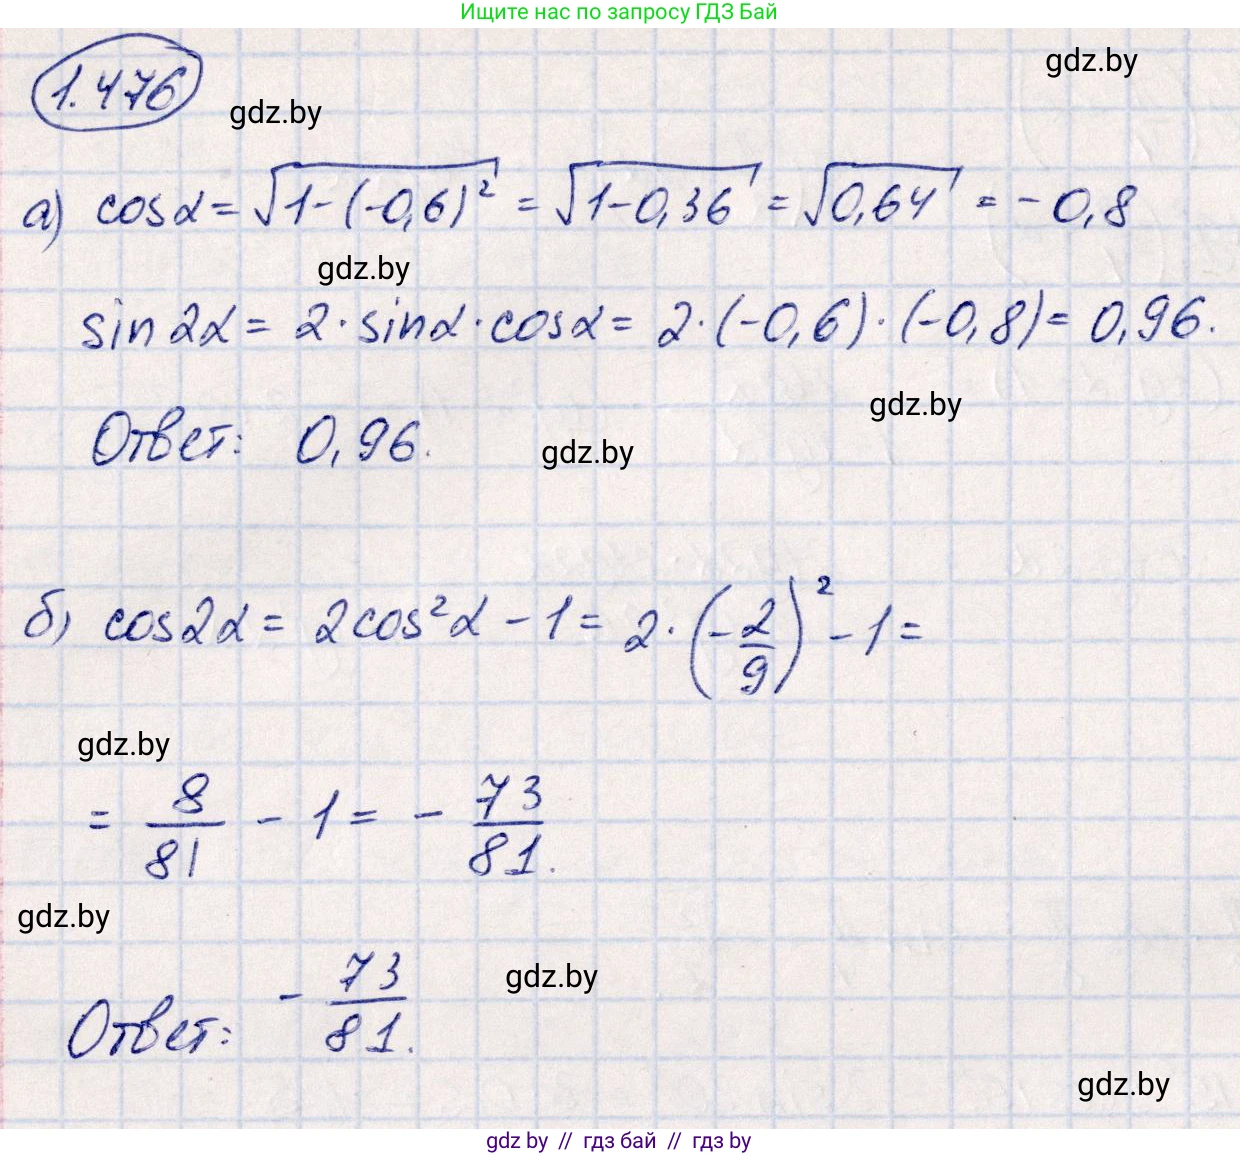 Ищите нас по запросу ГДЗ Бай
gdz.by
1.476
gdz.by
а) cosα = √(1-(-0,6)²) = √(1-0,36) = √(0,64) = -0,8
gdz.by
sin2α = 2·sinα·cosα = 2·(-0,6)·(-0,8) = 0,96.
gdz.by
Ответ: 0,96.
gdz.by
б) cos2α = 2cos²α - 1 = 2·(-2/9)² - 1 =
gdz.by
= 8/81 - 1 = - 73/81.
gdz.by
gdz.by
Ответ: - 73/81.
gdz.by
gdz by // гдз бай // гдз by